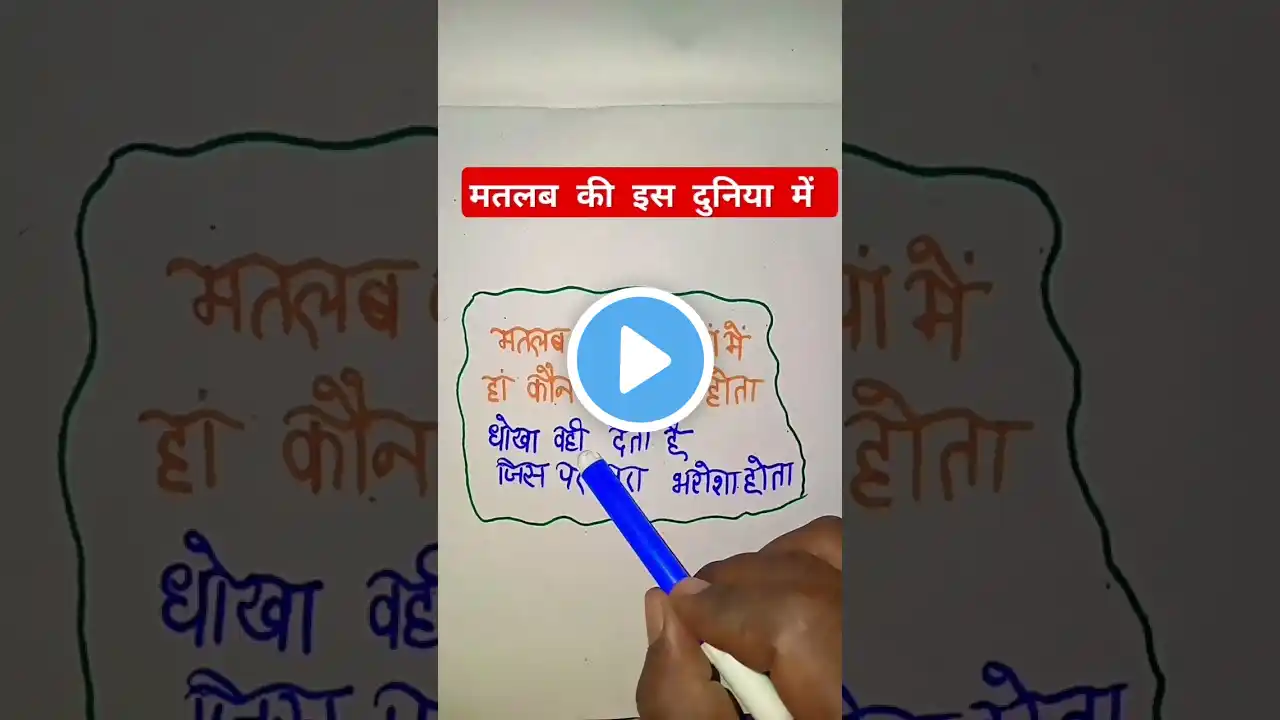 मतलब की इस दुनिया में
मतलब में
हां कौन होता
धोखा वही देता है
जिस भरोशा होता